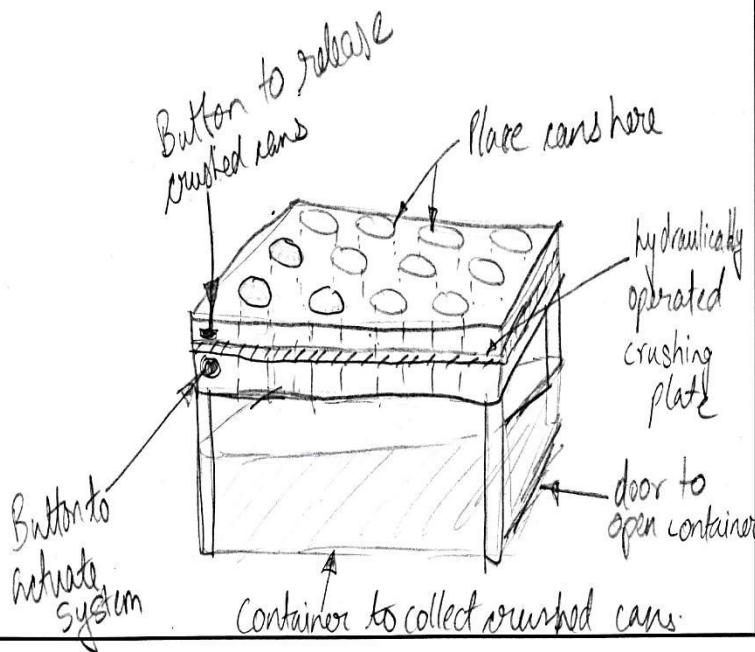 Button to release
crushed cans
Place cans here
hydraulically
operated
crushing
plate
door to
open container
Button to
actuate
system
Container to collect crushed cans.